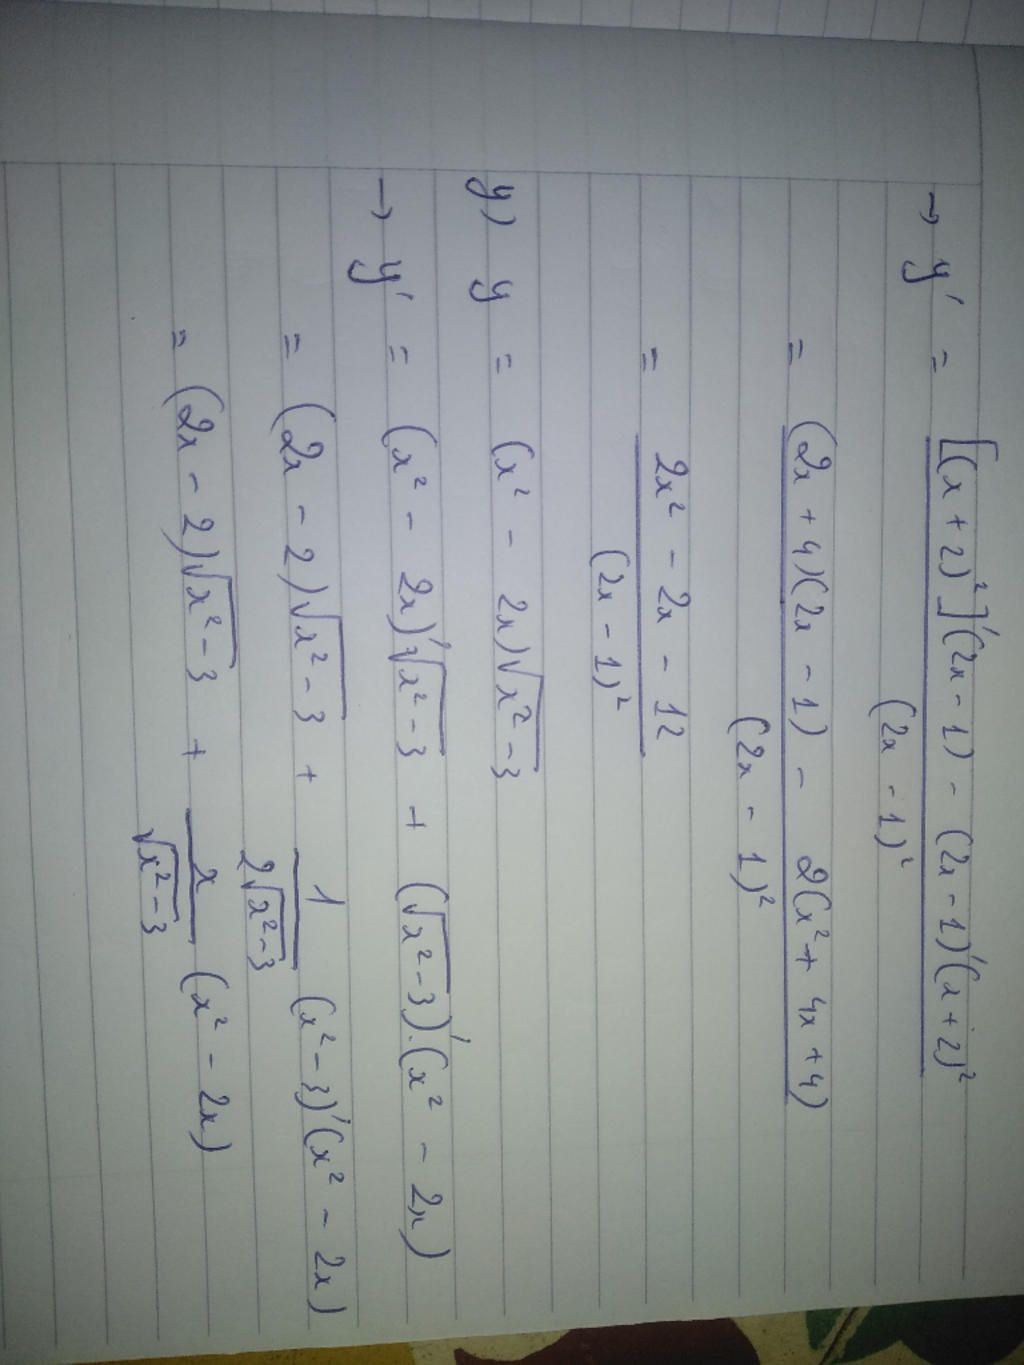 → y' = [(x + 2)²]'(2x - 1) - (2x - 1)'(x + 2)²
(2x - 1)²
= (2x + 4)(2x - 1) - 2(x² + 4x + 4)
(2x - 1)²
= 2x² - 2x - 12
(2x - 1)²
y) y = (x² - 2x)√x² - 3
→ y' = (x² - 2x)'√x² - 3 + (√x² - 3)'.(x² - 2x)
= (2x - 2)√x² - 3 + 1 (x² - 3)'(x² - 2x)
2√x² - 3
= (2x - 2)√x² - 3 + x (x² - 2x)
√x² - 3